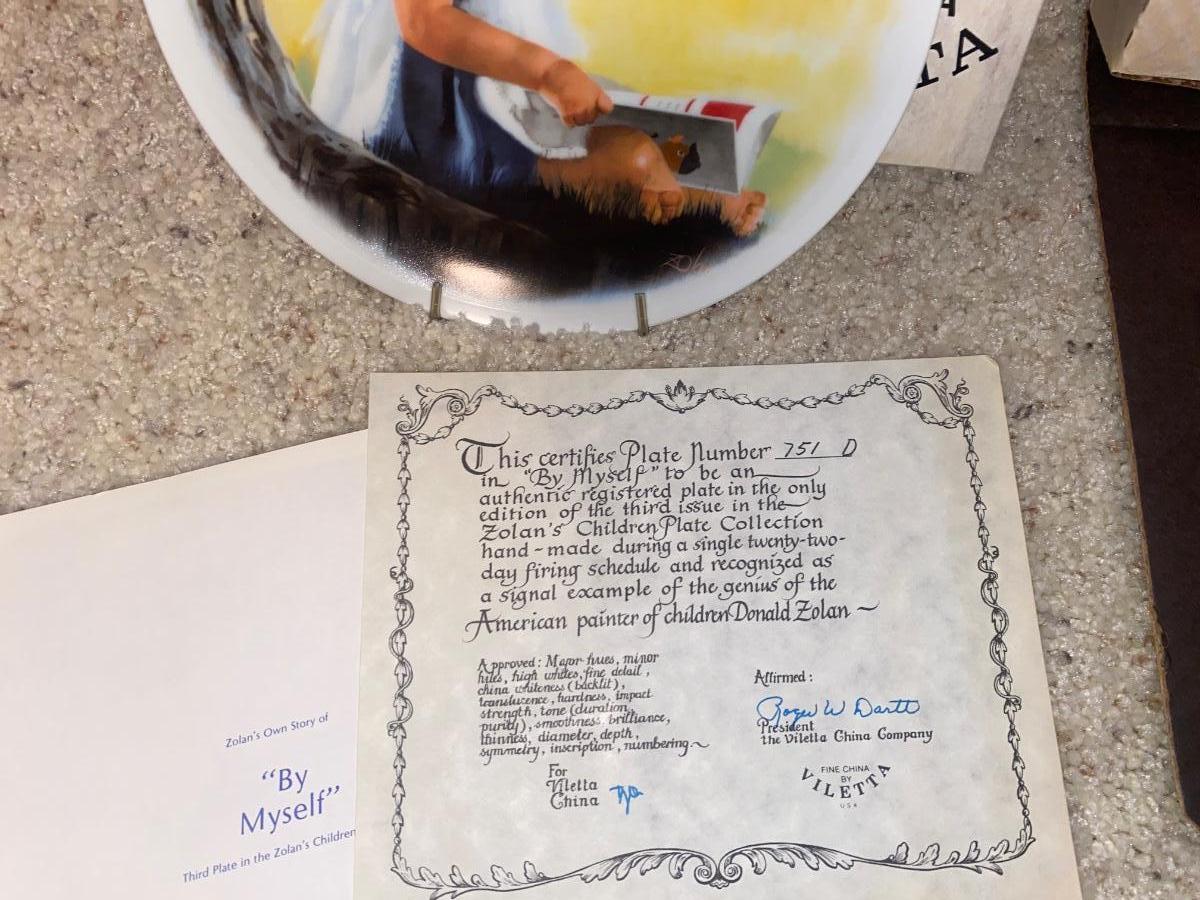 TA
Zolan's Own Story of
“By
Myself”
Third Plate in the Zolan's Children
This certifies Plate Number 751 D
in “By Myself” to be an
authentic registered plate in the only
edition of the third issue in the
Zolan's Children Plate Collection
hand-made during a single twenty-two-
day firing schedule and recognized as
a signal example of the genius of the
American painter of children Donald Zolan
Approved: Major hues, minor
hues, high whites, fine detail,
china whiteness (backlit),
translucence, hardness, impact
strength, tone (duration,
purity), smoothness, brilliance,
thinness, diameter, depth,
symmetry, inscription, numbering
For
Viletta
China
Affirmed:
Roger W Dartt
President
the Viletta China Company
FINE CHINA
BY
VILETTA
USA